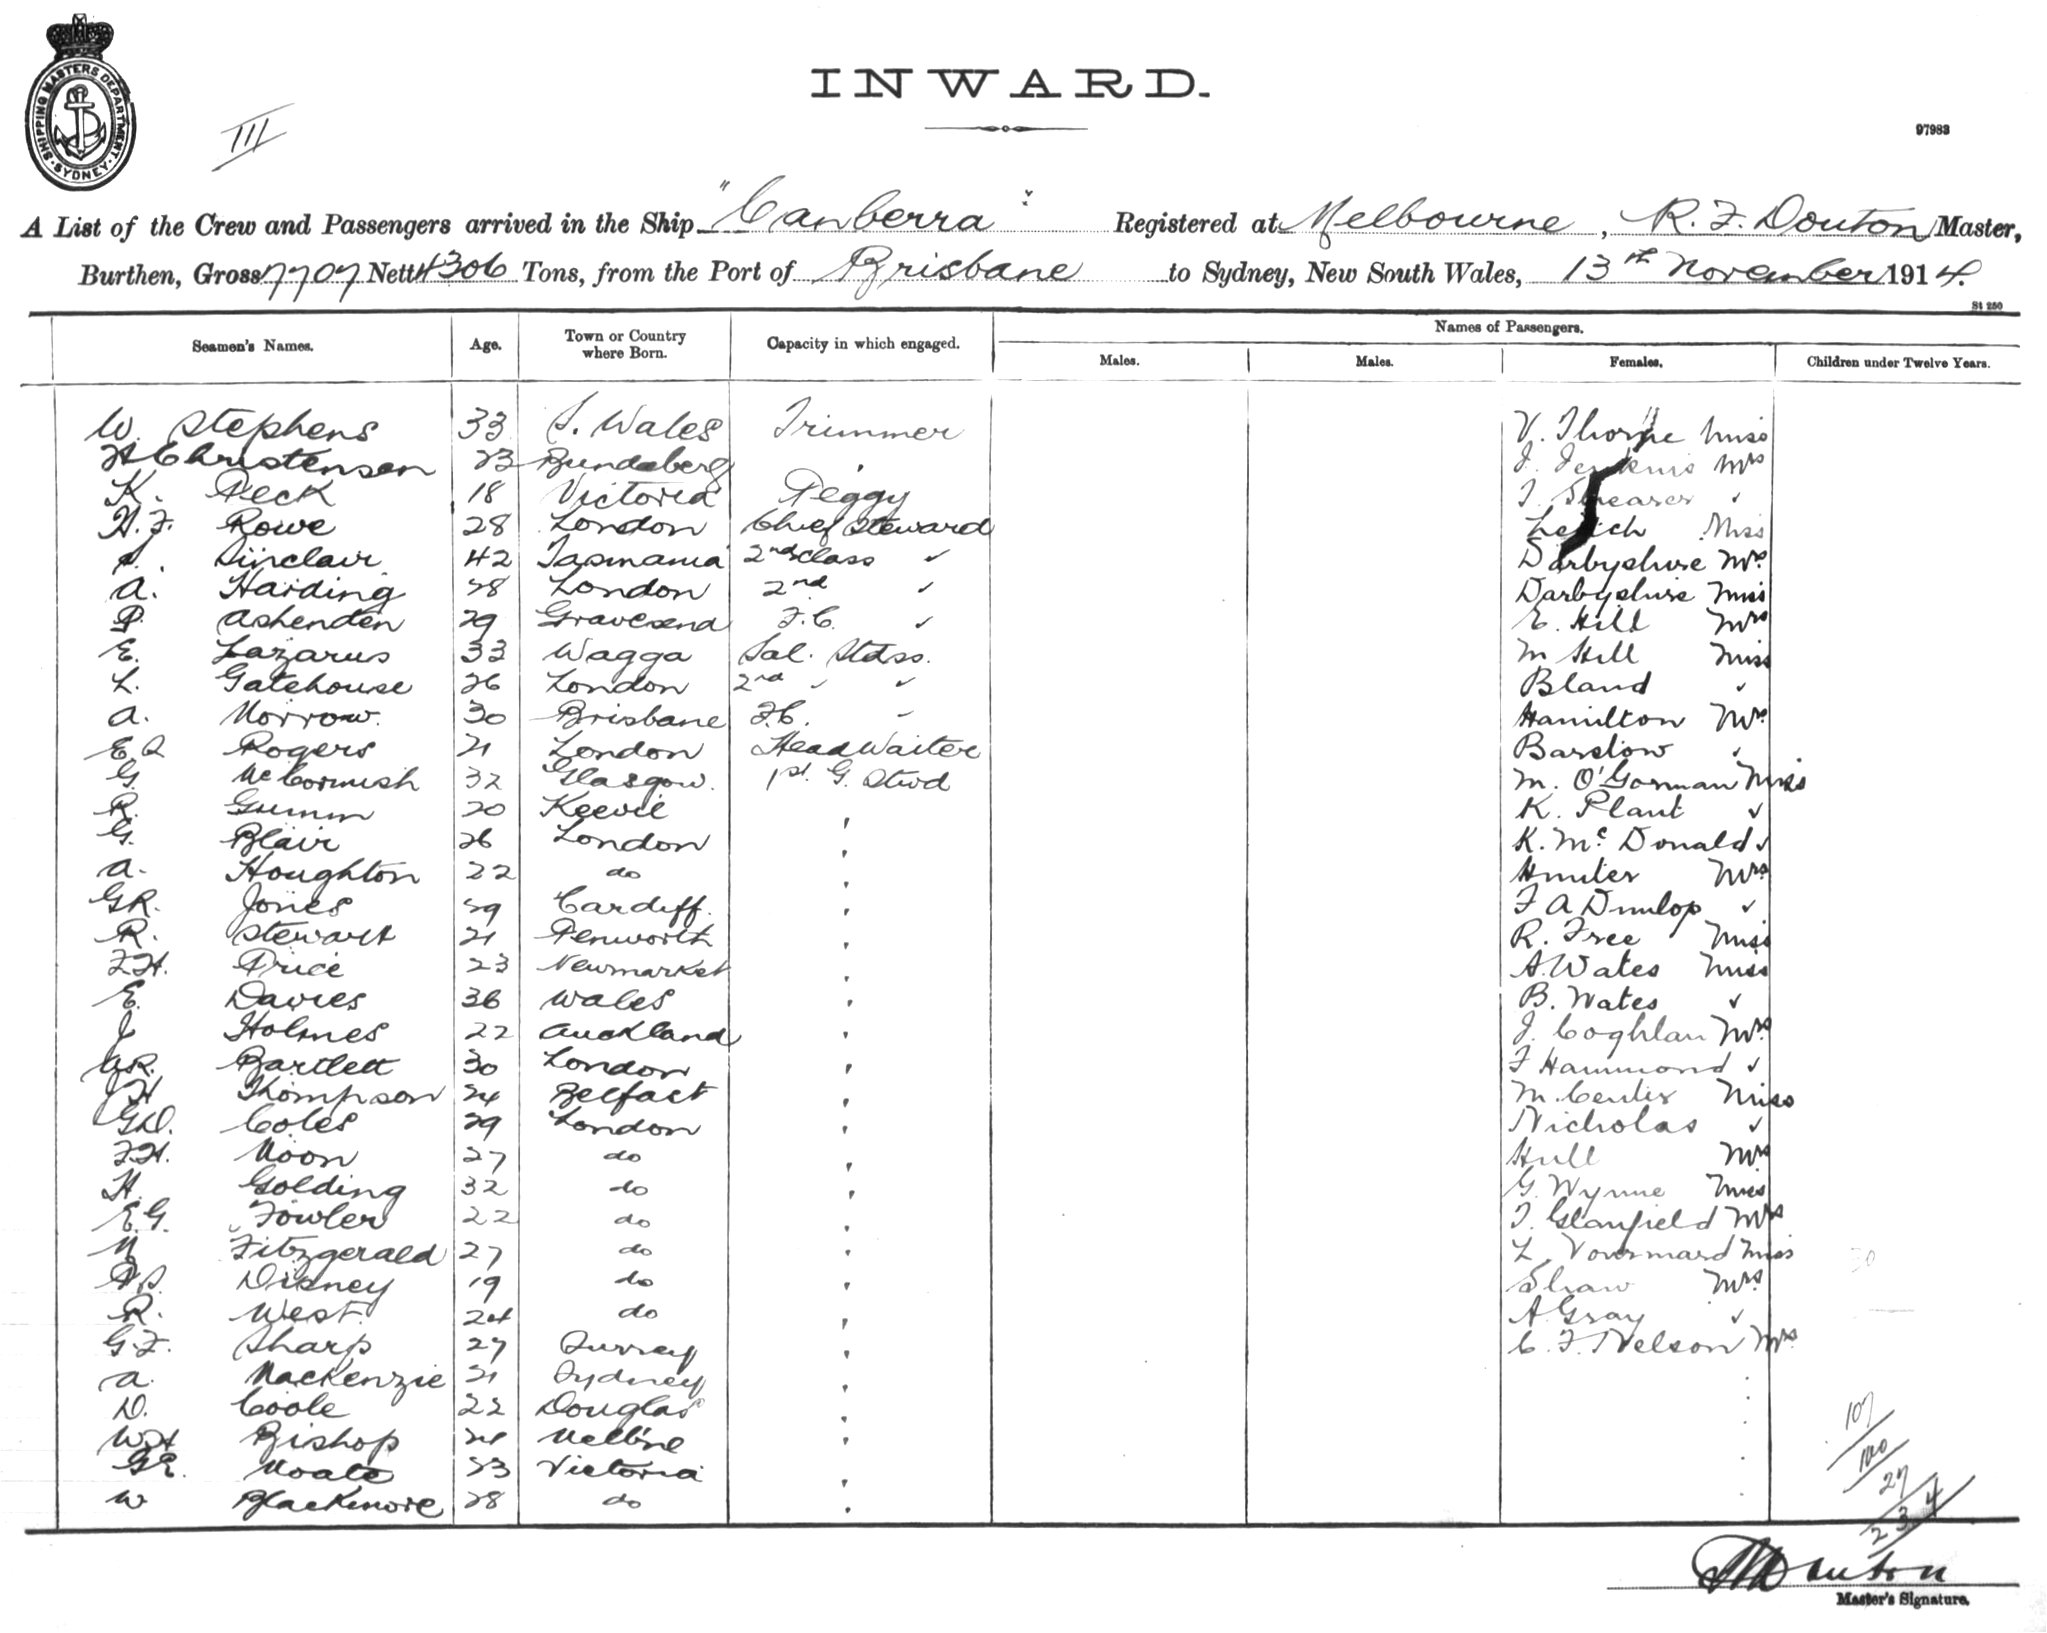 SHIPPING MASTERS DEPARTMENT SYDNEY
III
INWARD.
97983
A List of the Crew and Passengers arrived in the Ship "Canberra" Registered at Melbourne, R. F. Douton Master,
Burthen, Gross 7707 Nett 4306 Tons, from the Port of Brisbane to Sydney, New South Wales, 13th November 1914.
St 250
Seamen's Names. Age. Town or Country where Born. Capacity in which engaged. Names of Passengers.
Males. Males. Females. Children under Twelve Years.
W. Stephens 33 S. Wales Trimmer V. Thorne Miss
H Christensen 23 Bundaberg " J. Jenkins Mrs
K. Peck 18 Victoria Peggy Shearer ✓
H. F. Rowe 28 London Chief Steward Miss
S. Sinclair 42 Tasmania 2nd Class ✓ Darbyshire Mrs.
A. Harding 28 London 2nd ✓ Darbyshire Miss
P. Ashenden 29 Gravesend F.C. ✓ E. Hill Mrs
E. Lazarus 33 Wagga Sal. Stdss. M Hill Miss
L. Gatehouse 26 London 2nd " ✓ Bland ✓
A. Morrow. 30 Brisbane F.C. " Hamilton Mrs
E Rogers 21 London Head Waiter Barstow ✓
G. McCormish 32 Glasgow. 1st. G. Stwd M. O'Gorman Miss
R. Gumm 20 Keevil " K. Plant ✓
G. Blair 26 London " K. Mc Donald ✓
A. Houghton 22 do " Hunter Mrs
G R. Jones 29 Cardiff. " F A Dunlop ✓
R. Stewart 21 Penworth " R. Free Miss
F. H. Price 23 Newmarket " A. Wates Miss
E. Davies 36 Wales " B. Wates ✓
J Holmes 22 Auckland " J. Coghlan Mrs.
W R. Bartlett 30 London " F Hammond ✓
J H Thompson 24 Belfast " M. Center Miss
G D. Coles 29 London " Nicholas ✓
F. H. Moon 27 do " Hull Mrs
H. Golding 32 do " G. Wynne Miss
E. G. Fowler 22 do " T. Glanfield Mrs
M Fitzgerald 27 do " L. Miss
Disney 19 do " Shaw Mrs
R. West. 24 do " A Gray ✓
G. F. Sharp 27 Surrey " C. F. Nelson Mrs.
A. MacKenzie 21 Sydney "
D. Coole 22 Douglas "
W H Bishop 24 Melb'ne "
G E. Moate 23 Victoria "
W Blackmore 28 do "
107
100
27
234
Douton
Master's Signature.